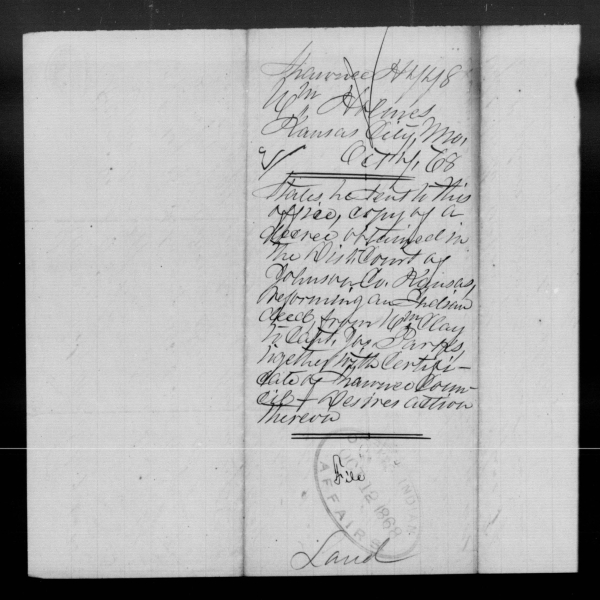 Shawnee H 448
Wm Holmes
Kansas City, Mo,
Oct 7, 68
States, he sent to this
office, copy of a
decree obtained in
the Dist. Court of
Johnson Co. Kansas,
Reforming an Indian
deed from Wm Clay
to Capt. Jos. Parks,
together with Certifi-
cate of Shawnee Coun-
cil & Desires action
thereon
File
INDIAN
12 1868
AFFAIRS
Land